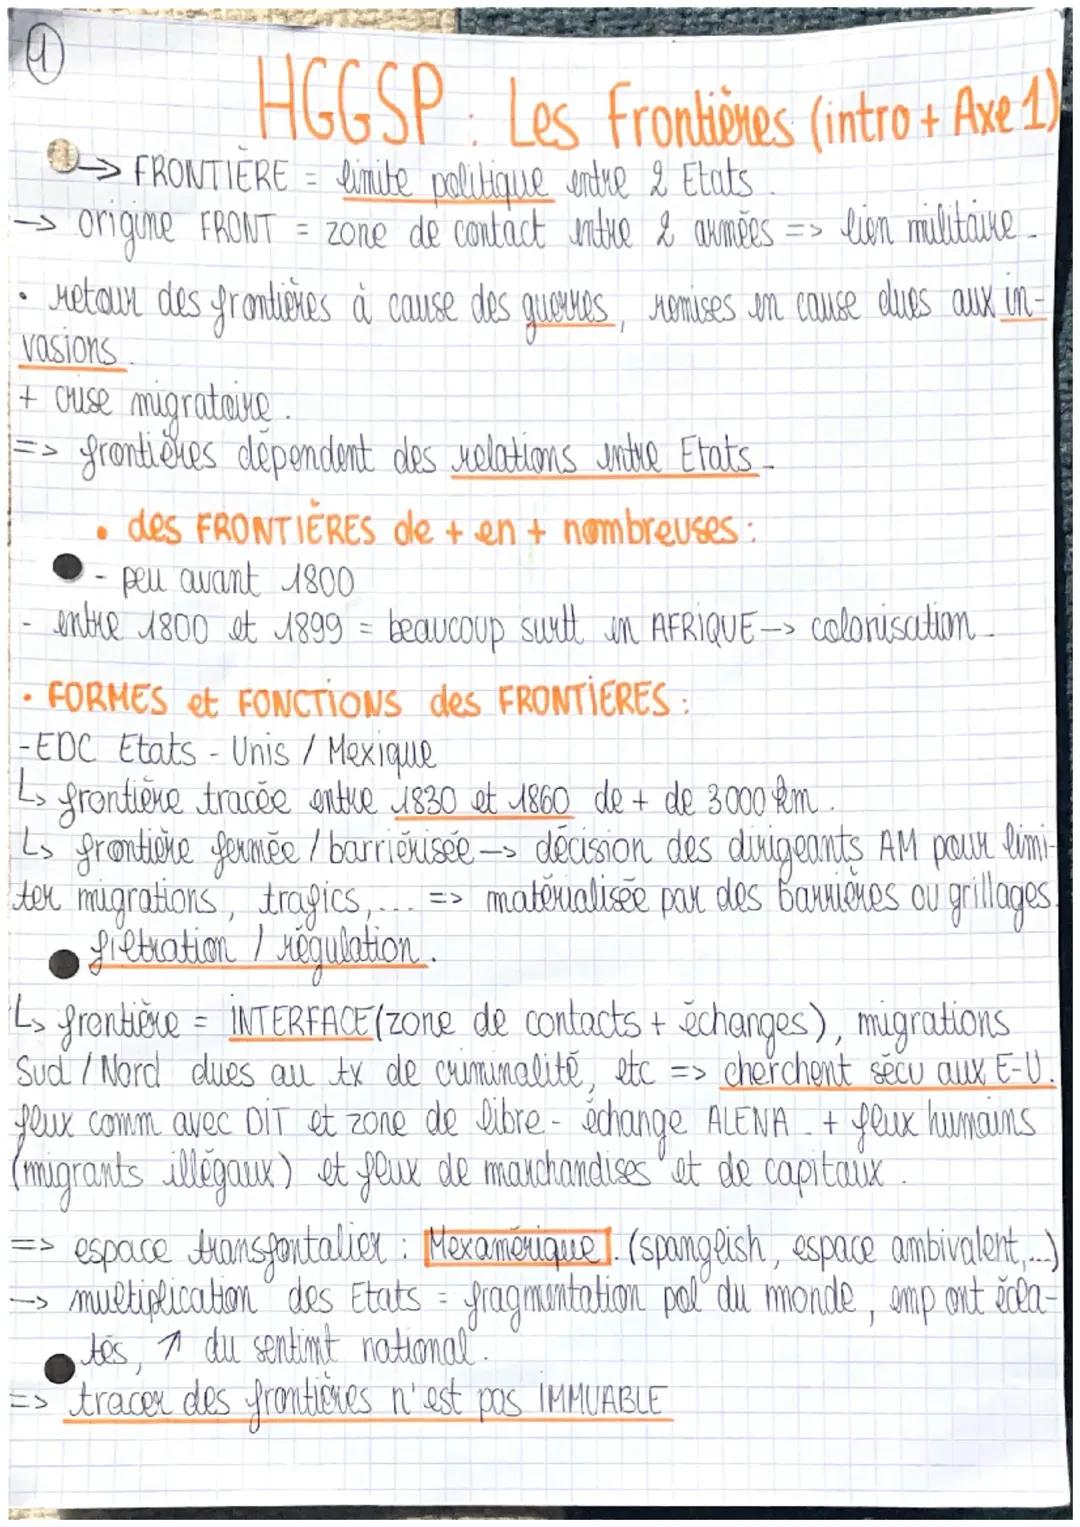 1
HGGSP : Les Frontières (intro + Axe 1)
→ FRONTIÈRE = limite politique entre 2 Etats.
→ origine FRONT = zone de contact entre 2 armées => lien militaire.
• retour des frontières à cause des guerres, remises en cause dues aux in-
vasions.
+ crise migratoire.
=> frontières dépendent des relations entre Etats.
• des FRONTIÈRES de + en + nombreuses :
- peu avant 1800
- entre 1800 et 1899 = beaucoup surtt en AFRIQUE → colonisation.
• FORMES et FONCTIONS des FRONTIÈRES :
- EDC Etats - Unis / Mexique
↳ frontière tracée entre 1830 et 1860 de + de 3000 km.
↳ frontière fermée / barriérisée → décision des dirigeants AM pour limi-
ter migrations, trafics,... => matérialisée par des barrières ou grillages.
filtration / régulation.
↳ frontière = INTERFACE (zone de contacts + échanges), migrations
Sud / Nord dues au tx de criminalité, etc => cherchent sécu aux E-U.
flux comm avec DIT et zone de libre - échange ALENA. + flux humains
(migrants illégaux) et flux de marchandises et de capitaux.
=> espace transfontalier : Mexamérique. (spanglish, espace ambivalent,...)
→ multiplication des Etats = fragmentation pol du monde, emp ont écla-
tés, ↗ du sentimt national.
=> tracer des frontières n'est pas IMMUABLE